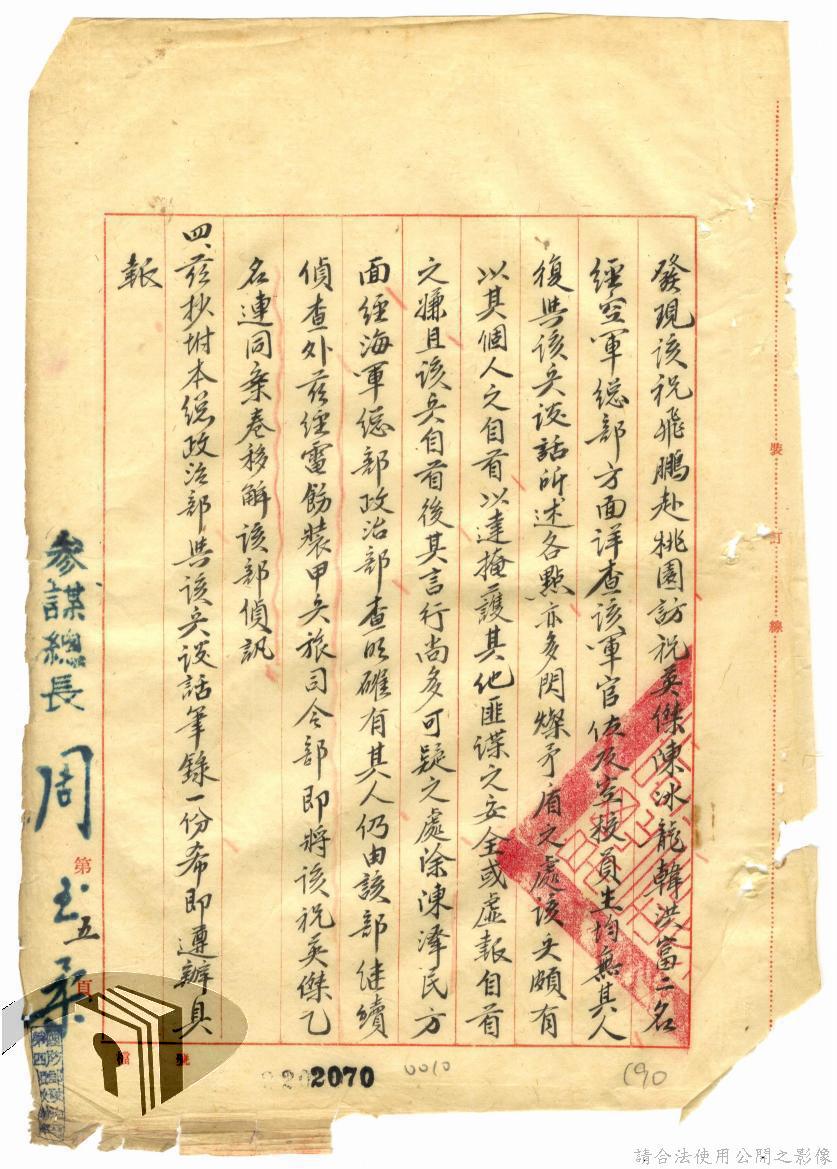 發現該祝飛鵬赴桃園訪祝英傑陳冰龍韓洪富二名
經空軍總部方面詳查該軍官佐及空校員生均無其人
復與該兵談話所述各點亦多閃爍矛盾之處該兵頗有
以其個人之自首以達掩護其他匪諜之安全或虛報自首
之嫌且該兵自首後其言行尚多可疑之處除陳澤民方
面經海軍總部政治部查明確有其人仍由該部继續
偵查外茲經電飭裝甲兵旅司令部即將該祝英傑乙
名連同案卷移解該部偵訊
四、茲抄附本總政治部與該兵談話筆錄一份希即遵辦具
報
參謀總長 周至柔
第五頁
裝訂線
檔號
2070
0010
190
請合法使用公開之影像